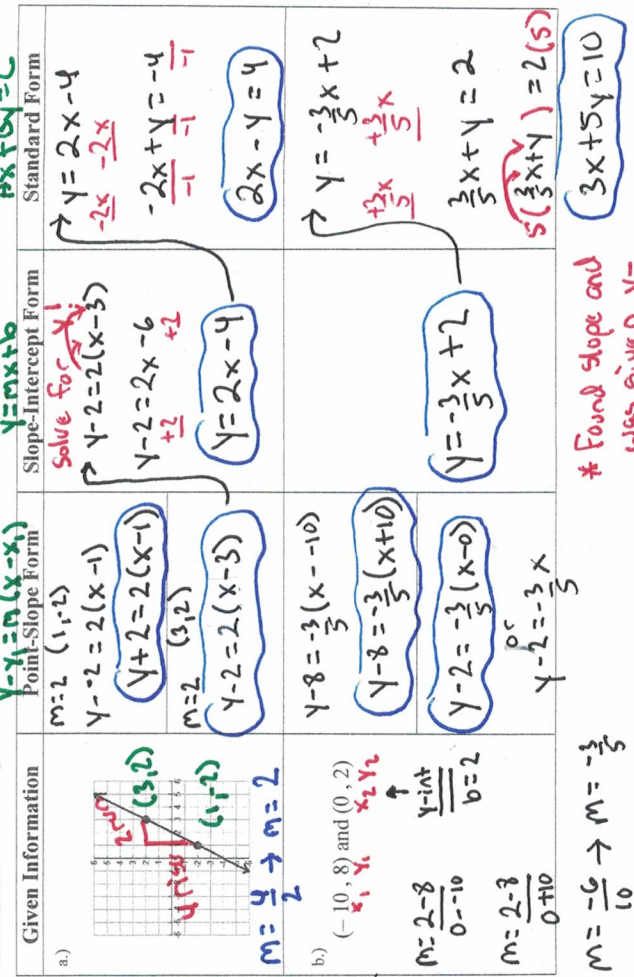 y-y₁=m(x-x₁)
y=mx+b
Ax+By=C
Given Information
Point-Slope Form
Slope-Intercept Form
Standard Form
a.)
2 run
4 rise
(3,2)
(1,-2)
m=4/2 → m=2
m=2 (1,-2)
y--2=2(x-1)
y+2=2(x-1)
m=2 (3,2)
y-2=2(x-3)
solve for y!
y-2=2(x-3)
y-2=2x-6
+2 +2
y=2x-4
y=2x-4
-2x -2x
-2x+y=-4
-1 -1 -1
2x-y=4
b.) (-10, 8) and (0, 2)
x₁ y₁ x₂ y₂
y-int
b=2
m=2-8/0--10
m=2-8/0+10
m=-6/10 → m=-3/5
y-8=-3/5(x--10)
y-8=-3/5(x+10)
y-2=-3/5(x-0)
or
y-2=-3/5x
y=-3/5x+2
y=-3/5x+2
+3/5x +3/5x
3/5x+y=2
5(3/5x+y)=2(5)
3x+5y=10
* Found slope and
was given y-